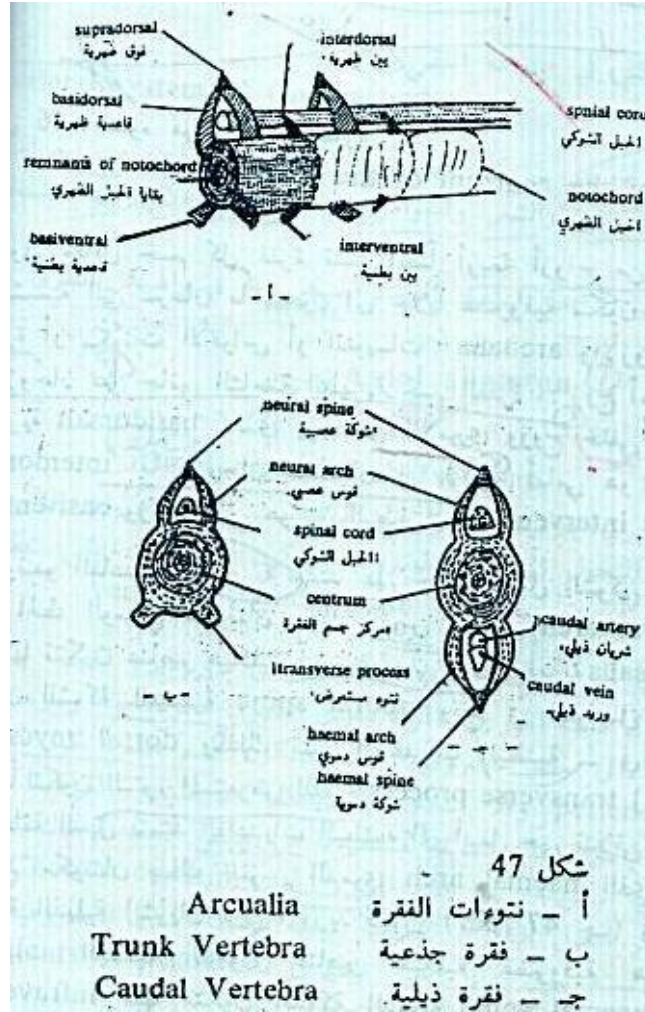 supradorsal
فوق ظهرية
interdorsal
بين ظهرية
basidorsal
قاعدية ظهرية
spnial cord
الحبل الشوكي
remnants of notochord
بقايا الحبل الظهري
notochord
الحبل الظهري
basiventral
قاعدية بطنية
interventral
بين بطنية
- أ -
neural spine
شوكة عصبية
neural arch
قوس عصبي
spinal cord
الحبل الشوكي
centrum
مركز جسم الفقرة
caudal artery
شريان ذيلي
transverse process
نتوء مستعرض
caudal vein
وريد ذيلي
- ب -
haemal arch
قوس دموي
- جـ -
haemal spine
شوكة دموية
شكل 47
أ – نتوءات الفقرة Arcualia
ب – فقرة جذعية Trunk Vertebra
جـ – فقرة ذيلية Caudal Vertebra